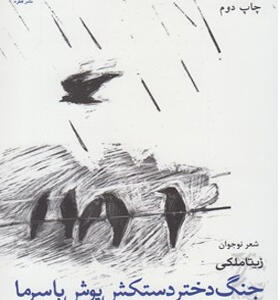 نشر قطره
چاپ دوم
شعر نوجوان
زیتا ملکی
جنگ دختر دستکش پوش با سرما